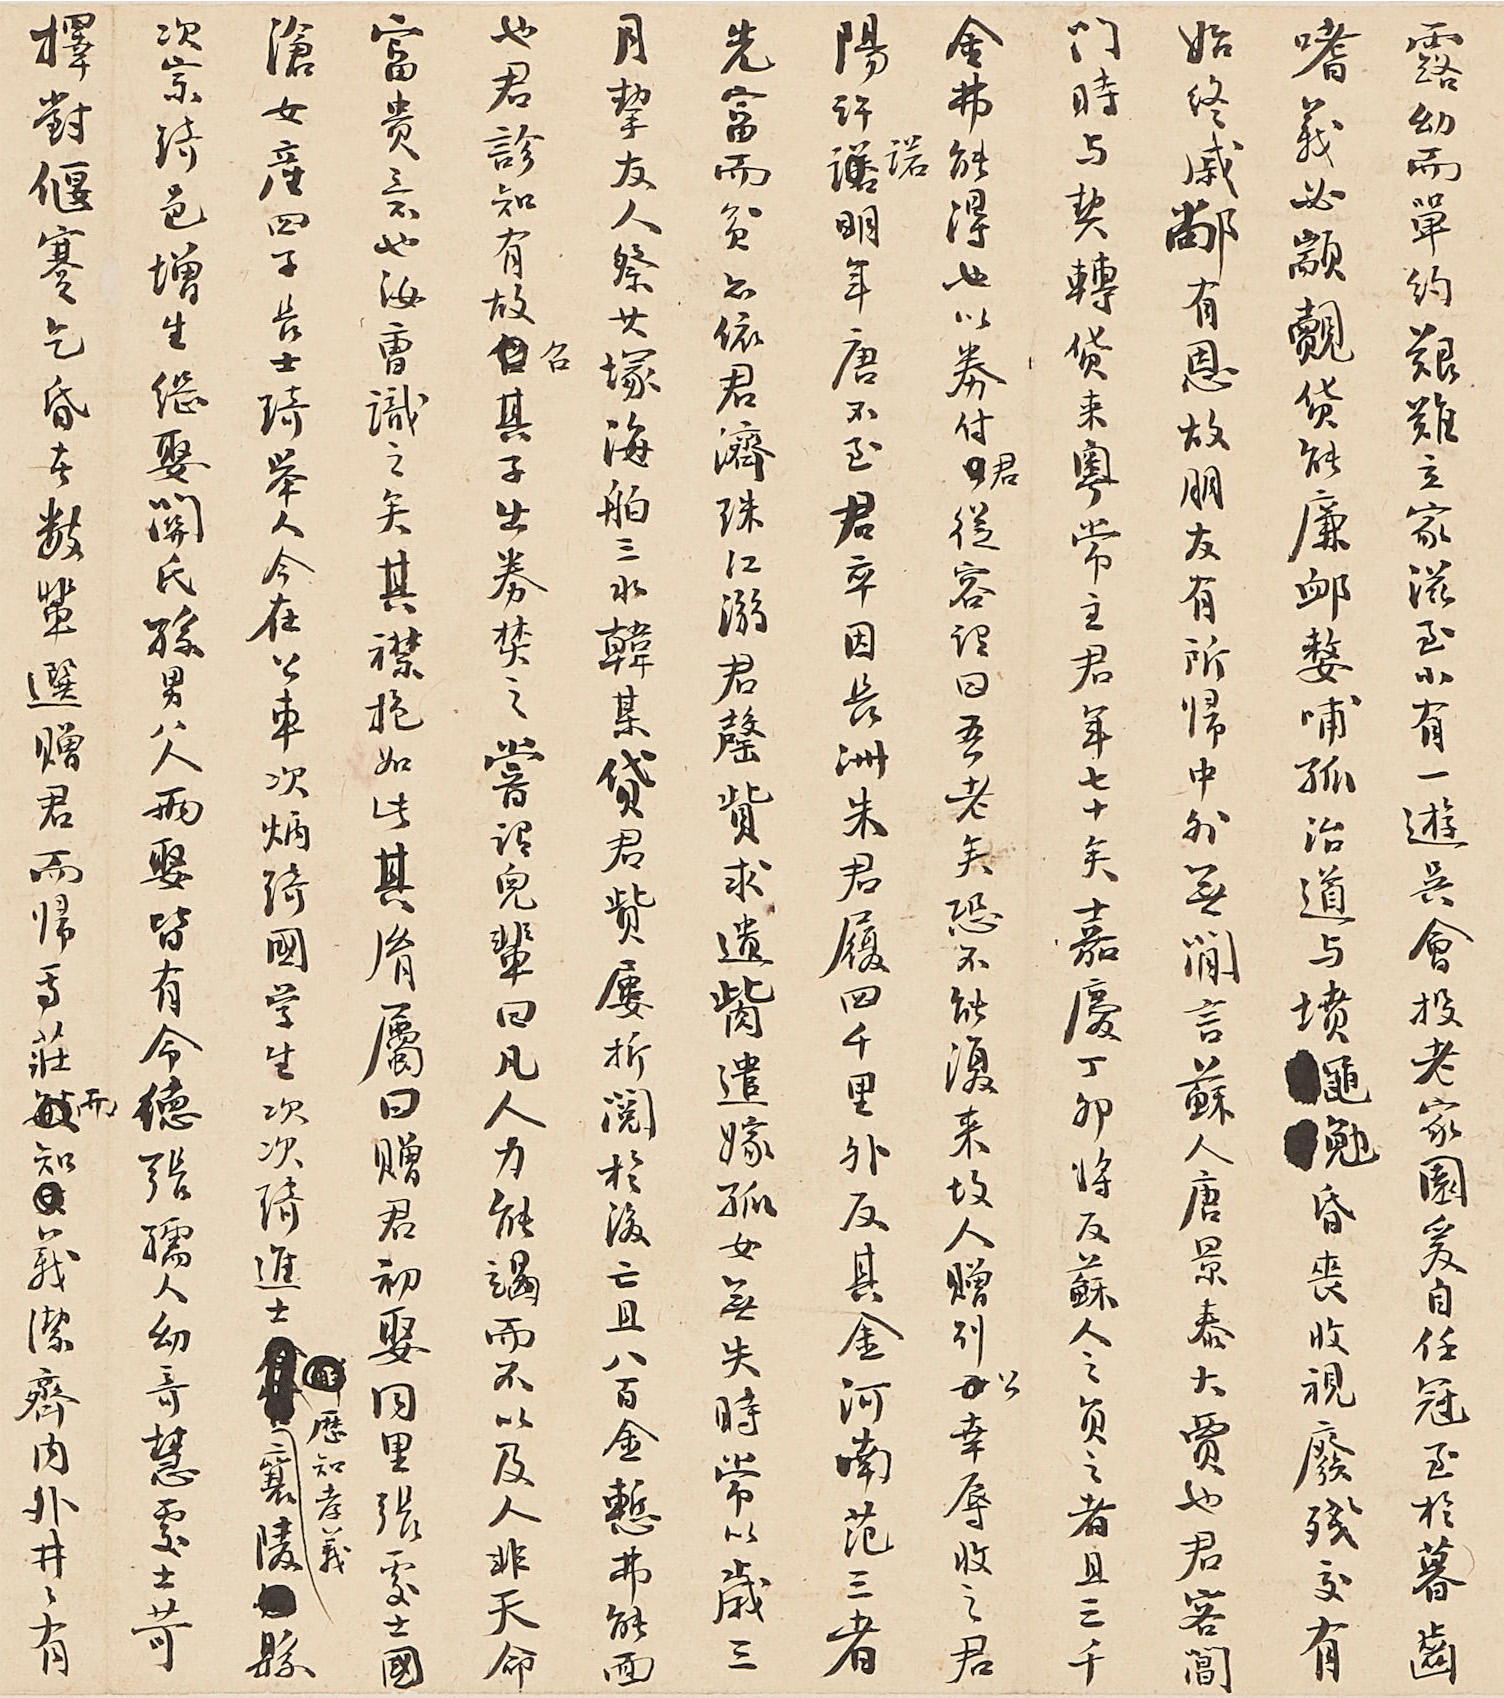 露幼而單約艱難立家滋至小有一遊吳會投老家園爰自任冠至於暮齒
嗜義必顓覿貨能廉卹嫠哺孤治道与墳黽勉昏喪收視廢殘交有
始終戚鄰有恩故朋友有所歸中外無閒言蘇人唐景泰大賈也君客閶
门時与契轉貸来粵常主君年七十矣嘉慶丁卯將反蘇人之負之者且三千
金弗能得也以券付君從容語曰吾老矣恐不能復来故人贈別以幸辱收之君
陽許諾明年唐不至君卒因長洲朱君履四千里外反其金河南范三者
先富而貧而依君濟珠江溺君罄貲求遺胔遣嫁孤女無失時常以歲三
月挈友人祭廿塚海舶三水韓某貸君貲屢折閱於後亡且八百金慙弗能面
也君診知有故召其子出券焚之嘗語兒輩曰凡人力能謁而不以及人非天命
富貴意也汝曹識之矣其襟抱如此其胥屬曰贈君初娶同里張處士國
滄女産四子長士琦举人今在公車次炳琦國学生次次琦進士歷知孝義襄陵縣
次宗琦邑增生繼娶關氏孫男八人両娶皆有令德張孺人幼奇慧處士苛
擇對偃蹇乞昏者數輩選贈君而帰焉莊而知義潔齊内外井〻有